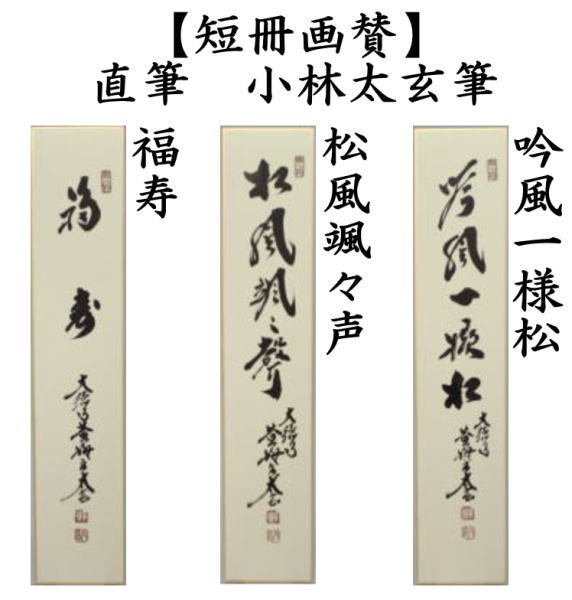 【短冊画賛】
直筆 小林太玄筆
吟風一様松
吟風一様松
松風颯々声
松風颯々聲
福寿
福壽